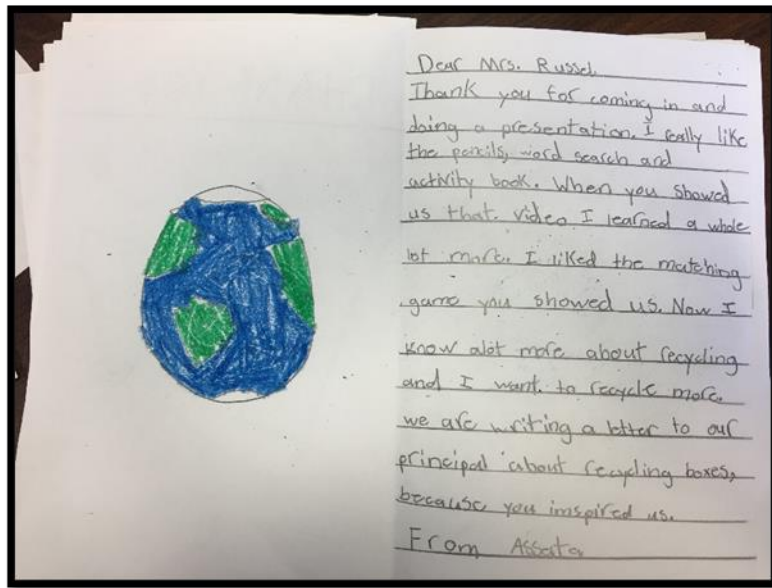 Dear Mrs. Russel
Thank you for coming in and
doing a presentation. I really like
the pencils, word search and
activity book. When you showed
us that video I learned a whole
lot more. I liked the matching
game you showed us. Now I
know alot more about recycling
and I want to recycle more.
we are writing a letter to our
principal about recycling boxes,
because you imspired us.
From